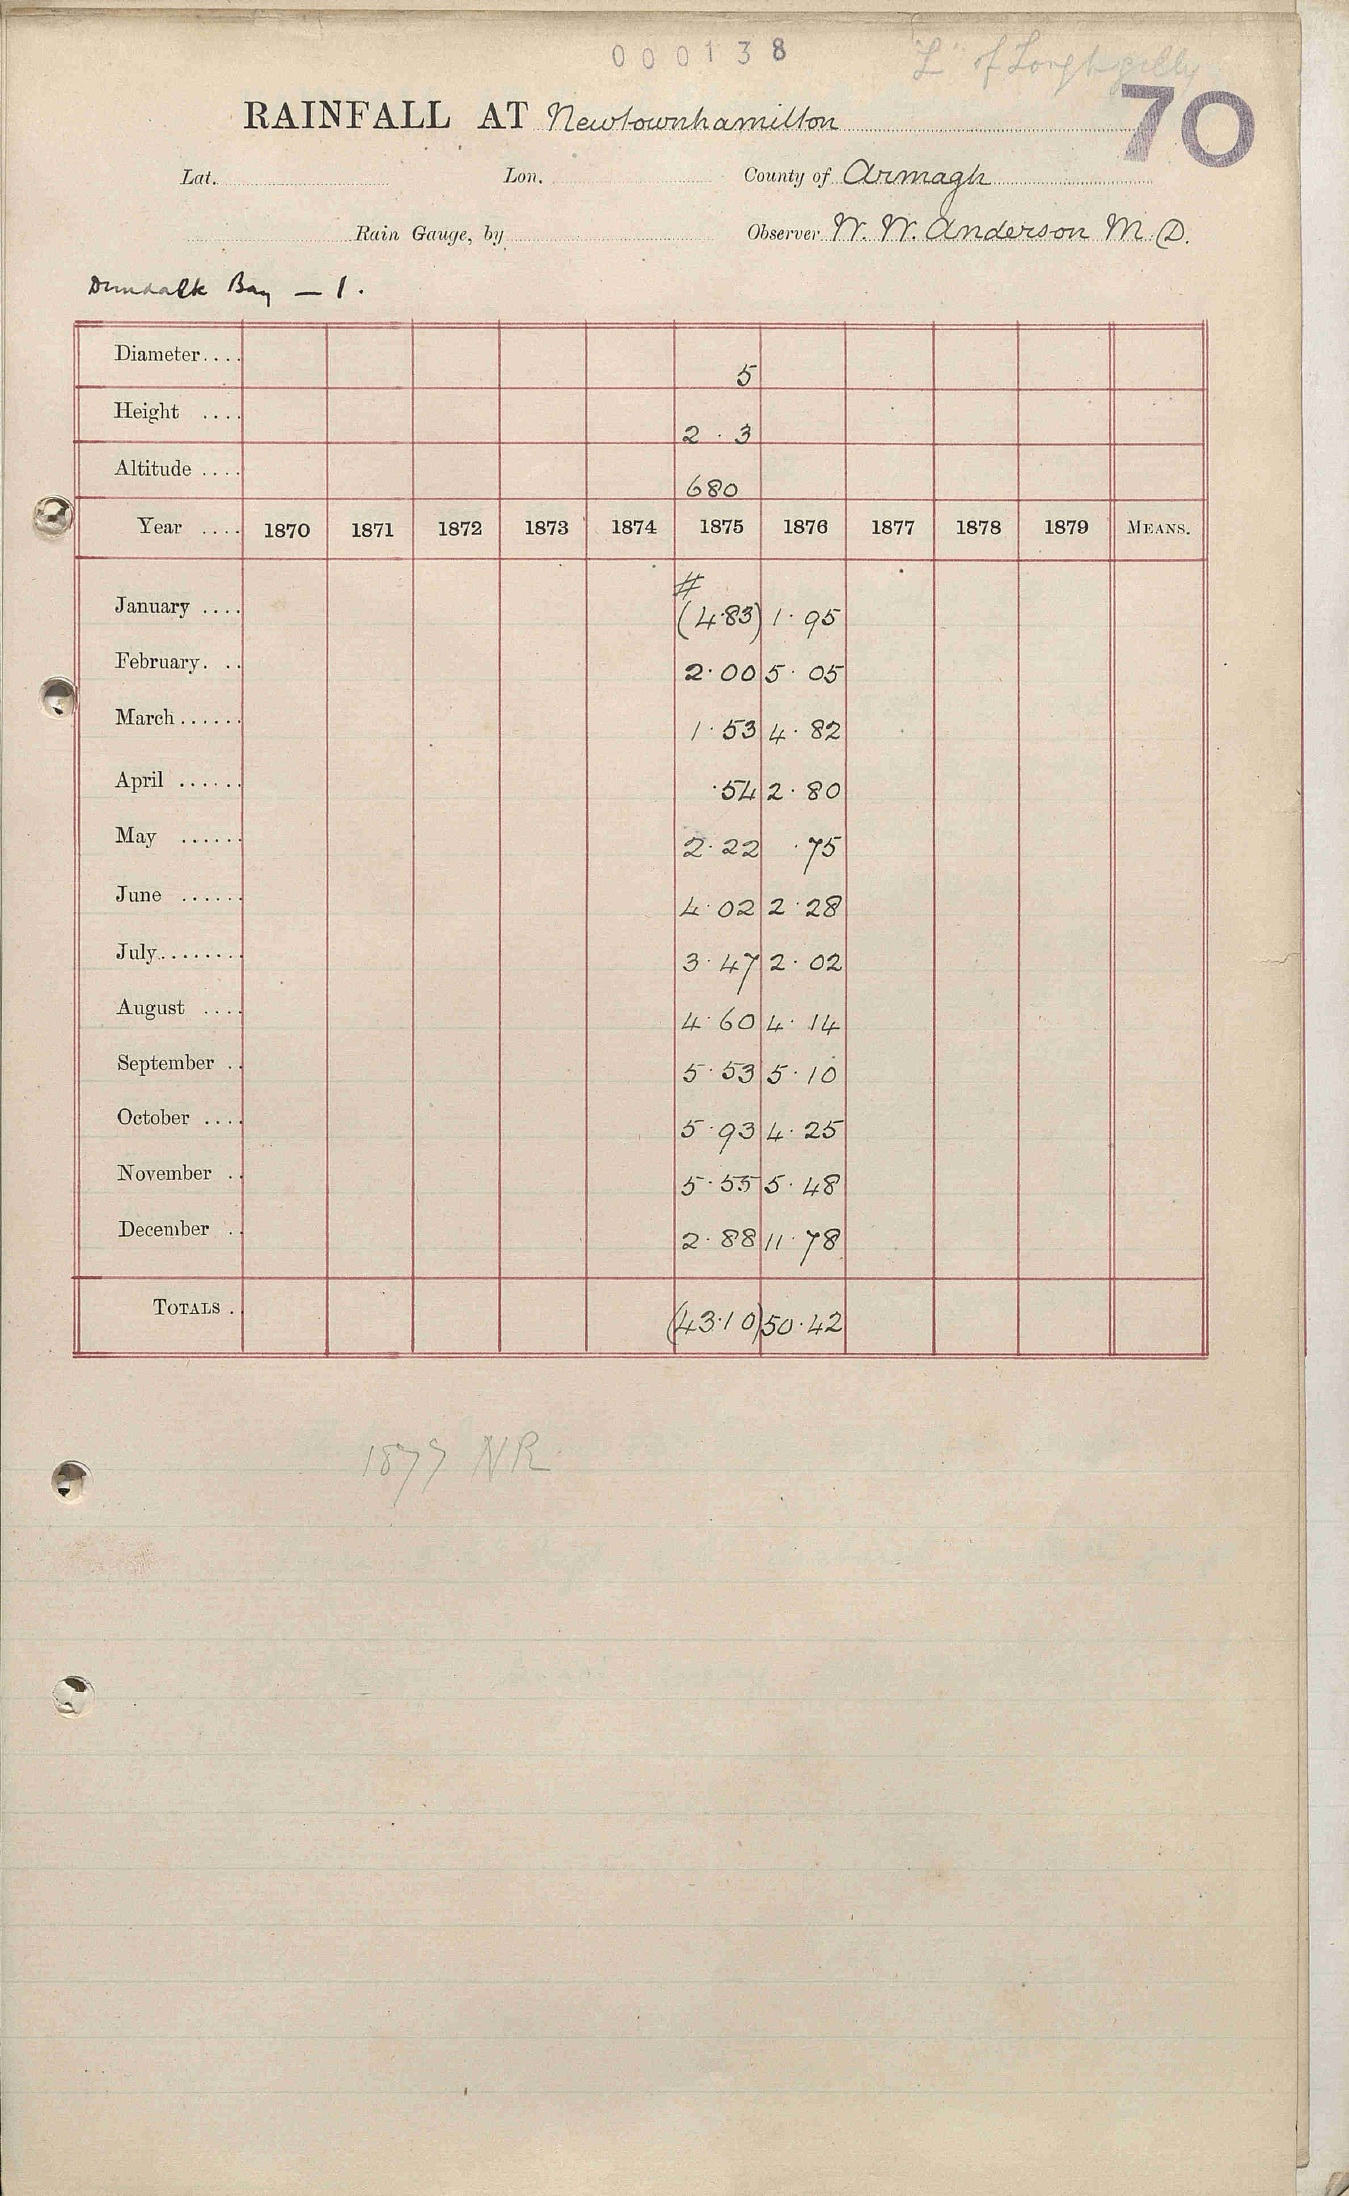 000138
"L" of Loughgilly
RAINFALL AT Newtownhamilton
70
Lat. Lon. County of Armagh
Rain Gauge, by Observer W. W. Anderson M.D.
Dundalk Bay — 1.
Diameter.... 5
Height .... 2 · 3
Altitude .... 680
Year .... 1870 1871 1872 1873 1874 1875 1876 1877 1878 1879 MEANS.
#
January .... (4·83) 1·95
February. .. 2·00 5·05
March ...... 1·53 4·82
April ...... ·54 2·80
May ...... 2·22 ·75
June ...... 4·02 2·28
July........ 3·47 2·02
August .... 4·60 4·14
September .. 5·53 5·10
October .... 5·93 4·25
November .. 5·55 5·48
December .. 2·88 11·78
TOTALS .. (43·10) 50·42
1877 NR